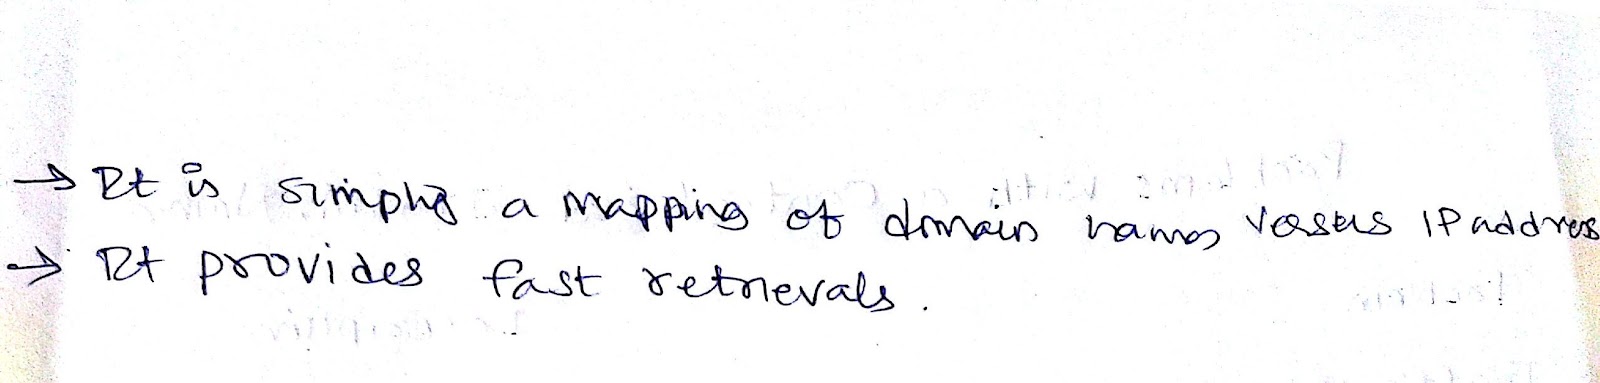 → It is simply a mapping of domain names versus IP address
→ It provides fast retrievals.